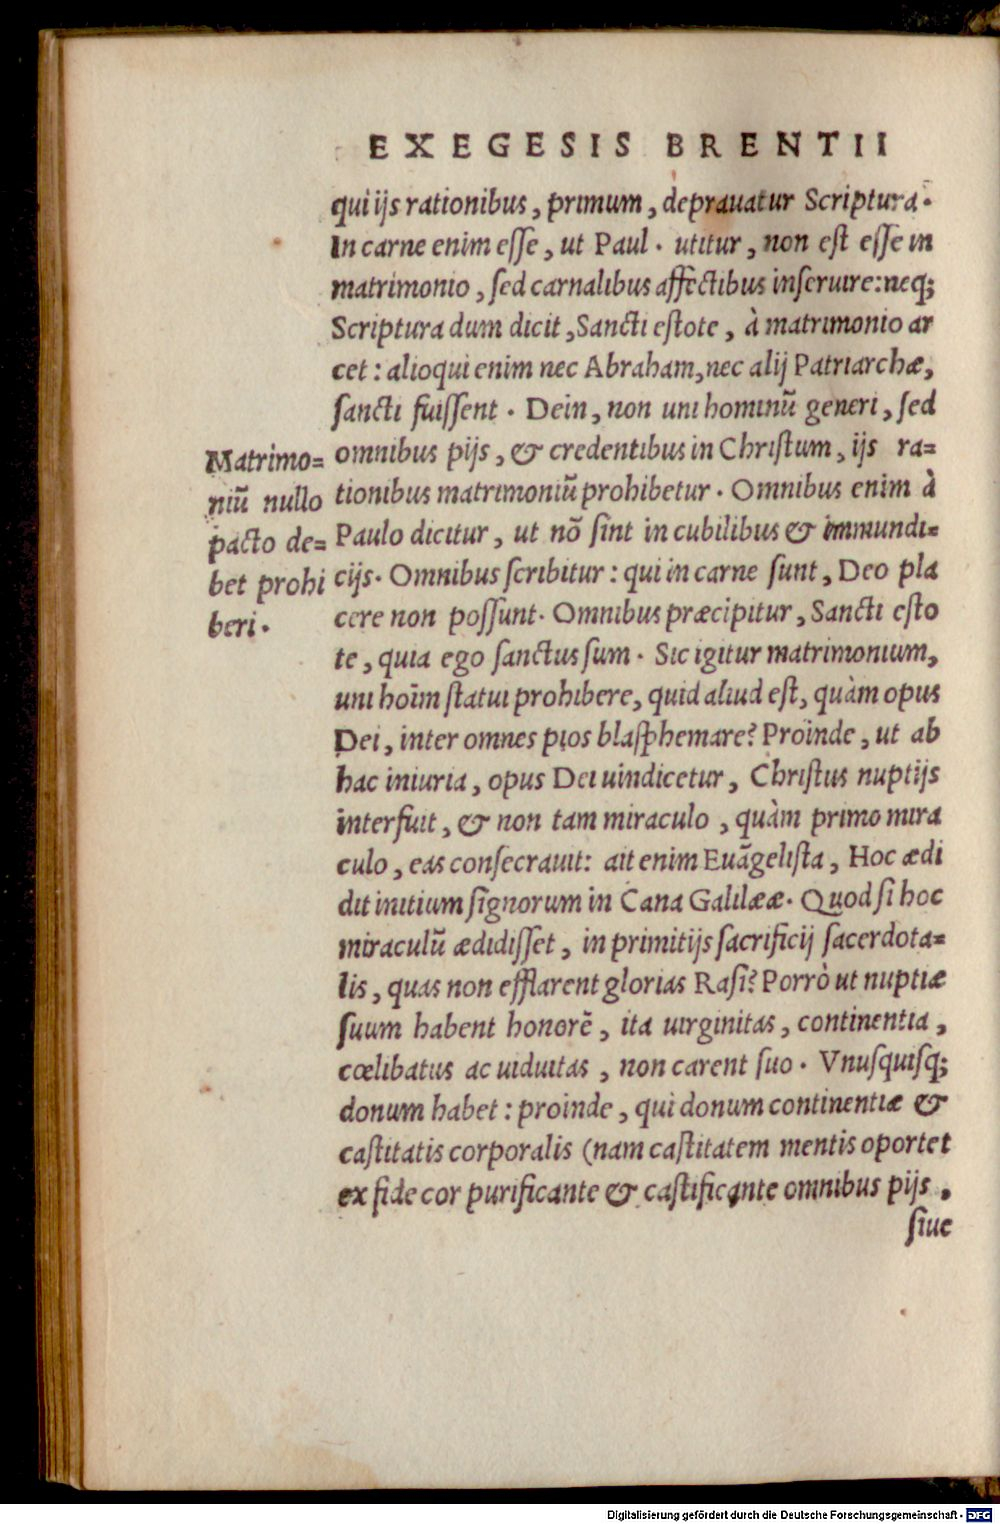 EXEGESIS BRENTII
qui ijs rationibus, primum, deprauatur Scriptura.
In carne enim esse, ut Paul. utitur, non est esse in
matrimonio, sed carnalibus affectibus inseruire: neq;
Scriptura dum dicit, Sancti estote, à matrimonio ar
cet: alioqui enim nec Abraham, nec alij Patriarchæ,
sancti fuissent. Dein, non uni hominũ generi, sed
Matrimo=
niũ nullo
pacto de=
bet prohi
beri.
omnibus pijs, & credentibus in Christum, ijs ra=
tionibus matrimoniũ prohibetur. Omnibus enim à
Paulo dicitur, ut nõ sint in cubilibus & immundi=
cijs. Omnibus scribitur: qui in carne sunt, Deo pla
cere non possunt. Omnibus præcipitur, Sancti esto
te, quia ego sanctus sum. Sic igitur matrimonium,
uni hoĩm statui prohibere, quid aliud est, quàm opus
Dei, inter omnes pios blasphemare? Proinde, ut ab
hac iniuria, opus Dei uindicetur, Christus nuptijs
interfuit, & non tam miraculo, quàm primo mira
culo, eas consecrauit: ait enim Euãgelista, Hoc ædi
dit initium signorum in Cana Galilææ. Quod si hoc
miraculũ ædidisset, in primitijs sacrificij sacerdota=
lis, quas non efflarent glorias Rasi? Porrò ut nuptiæ
suum habent honorẽ, ita uirginitas, continentia,
cœlibatus ac uiduitas, non carent suo. Vnusquisq;
donum habet: proinde, qui donum continentiæ &
castitatis corporalis (nam castitatem mentis oportet
ex fide cor purificante & castificante omnibus pijs,
siue
Digitalisierung gefördert durch die Deutsche Forschungsgemeinschaft - DFG